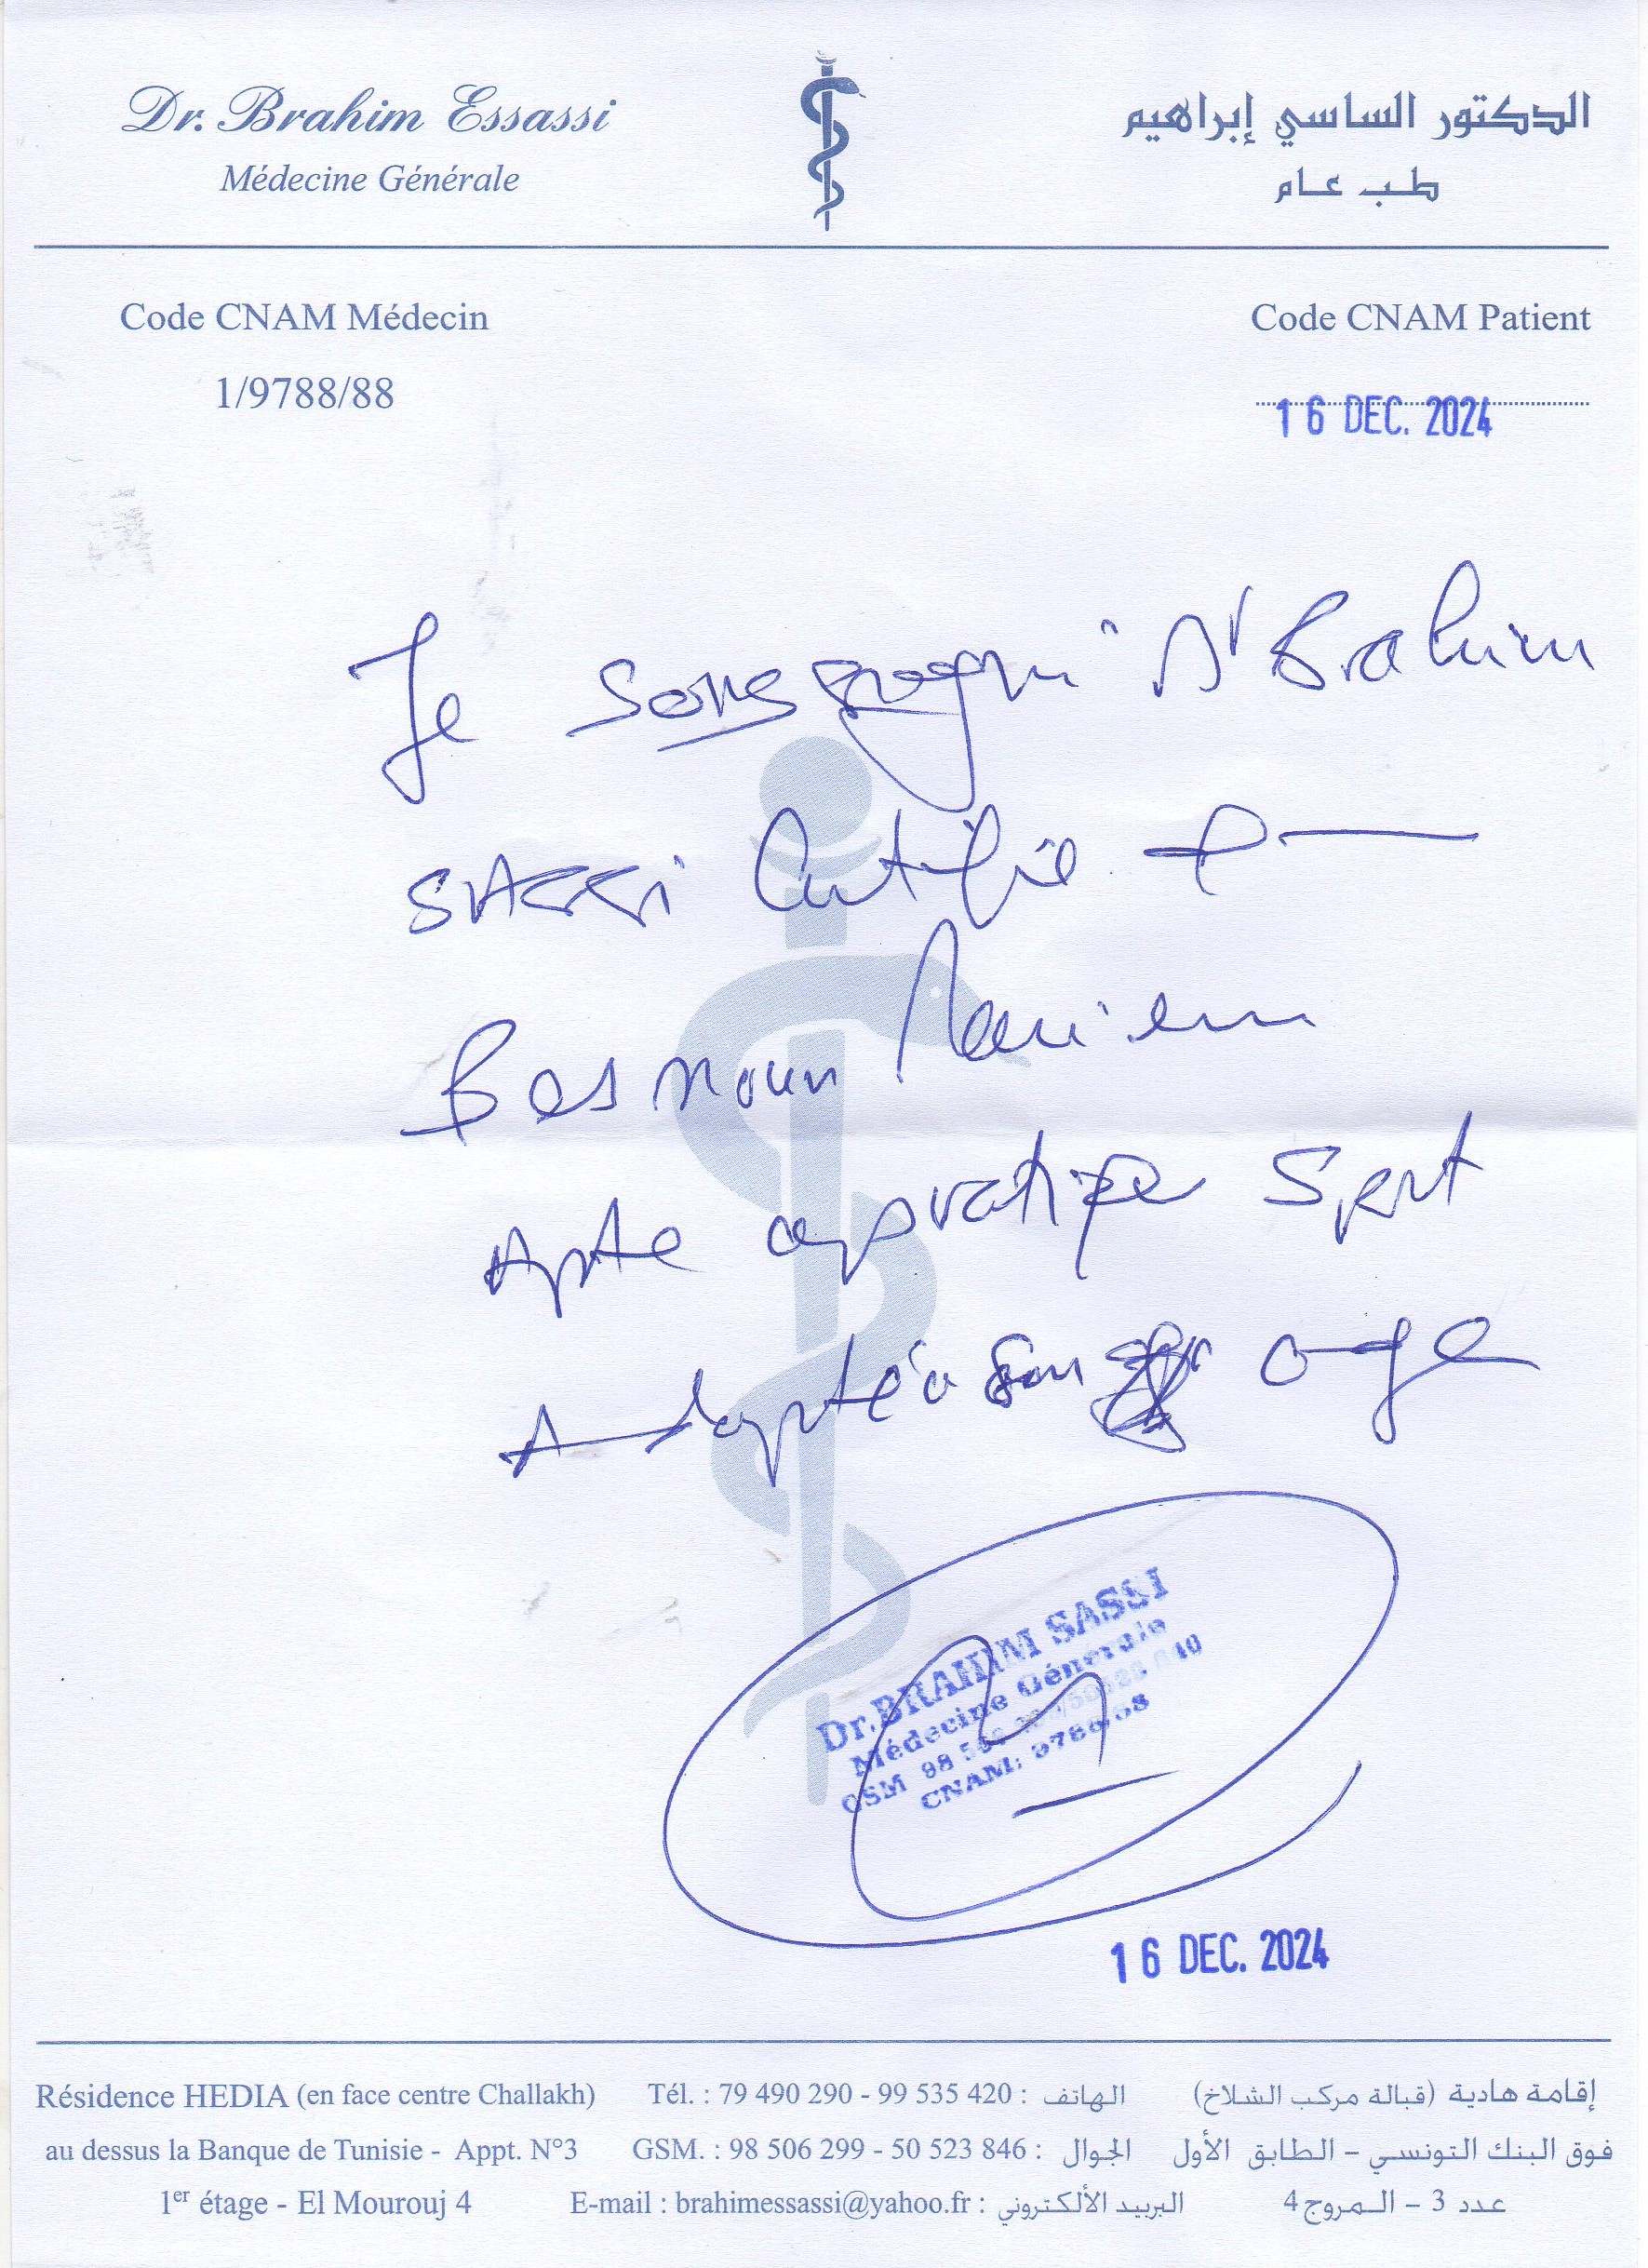 Dr. Brahim Essassi
Médecine Générale
الدكتور الساسي إبراهيم
طب عام
Code CNAM Médecin
1/9788/88
Code CNAM Patient
16 DEC. 2024
Je soussigné Dr Brahim
SASSI Certifie q
Besnoun Mariem
Apte a pratiqe Sport
Adapté à son age
Dr. BRAHIM SASSI
Médecine Générale
GSM 98
CNAM:
16 DEC. 2024
Résidence HEDIA (en face centre Challakh)
au dessus la Banque de Tunisie - Appt. N°3
1er étage - El Mourouj 4
Tél. : 79 490 290 - 99 535 420 : الهاتف
GSM. : 98 506 299 - 50 523 846 : الجوال
E-mail : brahimessassi@yahoo.fr : البريد الألكتروني
إقامة هادية (قبالة مركب الشلاخ)
فوق البنك التونسي – الطابق الأول
عدد 3 – المروج 4